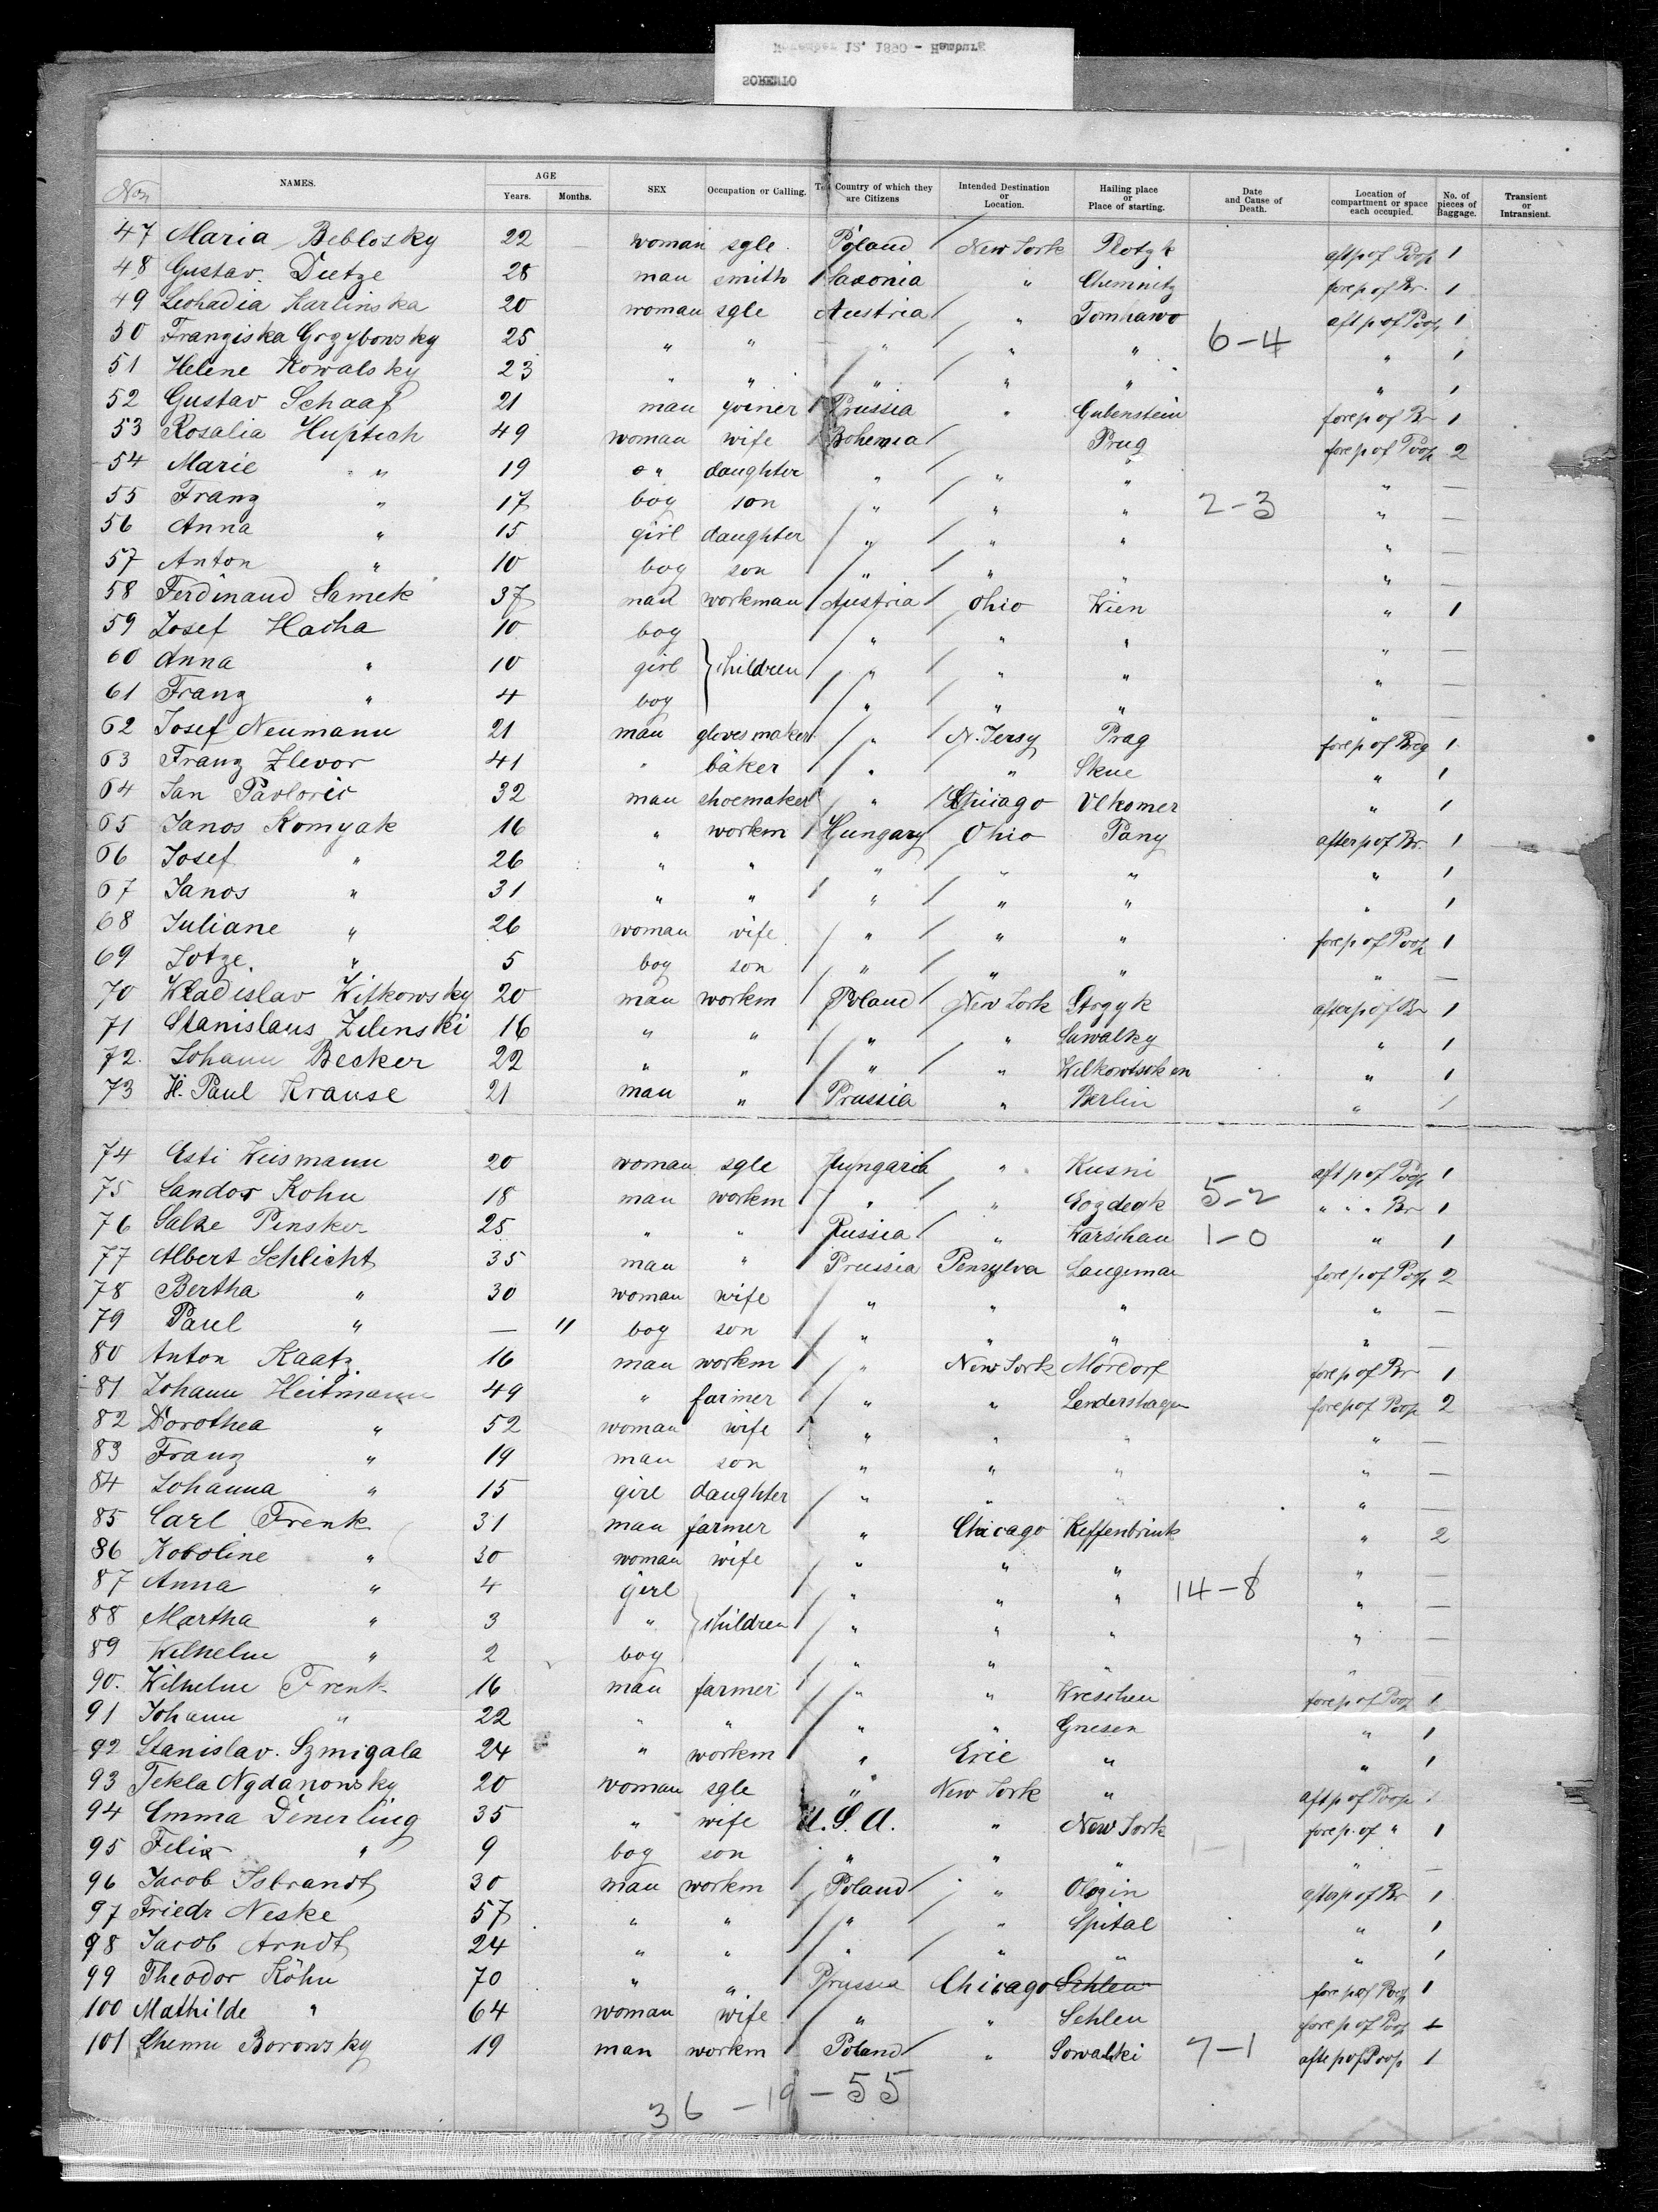 November 12, 1890 - Hamburg
SORENTO
Nos NAMES. AGE Years. Months. SEX Occupation or Calling. The Country of which they are Citizens Intended Destination or Location. Hailing place or Place of starting. Date and Cause of Death. Location of compartment or space each occupied. No. of pieces of Baggage. Transient or Intransient.
47 Maria Beblosky 22 woman sgle Poland New York Plotzk aft p of Poop 1
48 Gustav Dietze 28 man smith Saxonia " Chemnitz fore p of Br. 1
49 Leokadia Karlinska 20 woman sgle Austria " Tomhawo aft p of Poop 1
50 Franziska Grzybowsky 25 " " " " " 6-4 " 1
51 Helene Kowalsky 23 " " " " " " 1
52 Gustav Schaaf 21 man joiner Prussia " Gubenstein fore p of Br 1
53 Rosalia Huptich 49 woman wife Bohemia Prug fore p of Poop 2
54 Marie " 19 " daughter " " " " —
55 Franz " 17 boy son " " " 2-3 " —
56 Anna " 15 girl daughter " " " " —
57 Anton " 10 boy son " " " " —
58 Ferdinand Samek 37 man workman Austria Ohio Wien " 1
59 Josef Hacha 10 boy " " " " —
60 Anna " 10 girl children " " " " —
61 Franz " 4 boy " " " " —
62 Josef Neumann 21 man glovesmaker " N. Jersy Prag fore p of Breg 1
63 Franz Zlevor 41 " bäker " " Skue " 1
64 Jan Pavlovic 32 man shoemaker " Chicago Vlkomer " 1
65 Janos Komyak 16 " workm Hungary Ohio Pany after p of Br. 1
66 Josef " 26 " " " " " " 1
67 Janos " 31 " " " " " " 1
68 Juliane " 26 woman wife " " " fore p of Poop 1
69 Jotze " 5 boy son " " " " —
70 Wladislav Witkowsky 20 man workm Poland New York Strzyk after p of Br 1
71 Stanislaus Zilenski 16 " " " " Suwalky " 1
72. Johann Becker 22 " " " " Wilkowtschken " 1
73 H. Paul Krause 21 man " Prussia " Berlin " 1
74 Esti Weismann 20 woman sgle Hungaria " Kusni aft p of Poop 1
75 Sandor Kohn 18 man workm " " Gozdegk 5-2 " " " Br 1
76 Salke Pinsker 25 " " Russia " Warschau 1-0 " 1
77 Albert Schlicht 35 man " Prussia Pensylva Langeman fore p of Poop 2
78 Bertha " 30 woman wife " " " " —
79 Paul " — 11 boy son " " " " —
80 Anton Kaatz 16 man workm " New York Mördorf fore p of Br 1
81 Johann Heitmann 49 " farmer " " Lendershagen fore p of Poop 2
82 Dorothea " 52 woman wife " " " " —
83 Franz " 19 man son " " " " —
84 Johanna " 15 girl daughter " " " " —
85 Carl Frenk 31 man farmer " Chicago Keffenbrink " 2
86 Koboline " 30 woman wife " " " " —
87 Anna " 4 girl " " " 14-8 " —
88 Martha " 3 " children " " " " —
89 Wilhelm " 2 boy " " " " —
90. Wilhelm Frenk 16 man farmer " " Wreschen fore p of Poop 1
91 Johann " 22 " " " " Gnesen " 1
92 Stanislav. Szmigala 24 " workm " Erie " " 1
93 Tekla Ngdanowsky 20 woman sgle " New York " aft p of Poop 1
94 Emma Dinerling 35 " wife U.S.A. " New York fore p. of " 1
95 Felix " 9 boy son " " " 1-1 " —
96 Jacob Isbrandt 30 man workm Poland " Olozin after p of Br 1
97 Friedr Neske 57 " " " " Spital " 1
98 Jacob Arndt 24 " " " " " " 1
99 Theodor Köhn 70 " " Prussia Chicago Sehlen fore p of Breg 1
100 Mathilde " 64 woman wife " " Sehlen fore p of Poop 1
101 Chemu Borowsky 19 man workm Poland " Sowalki 7-1 afte p of Poop 1
36 - 19 - 55